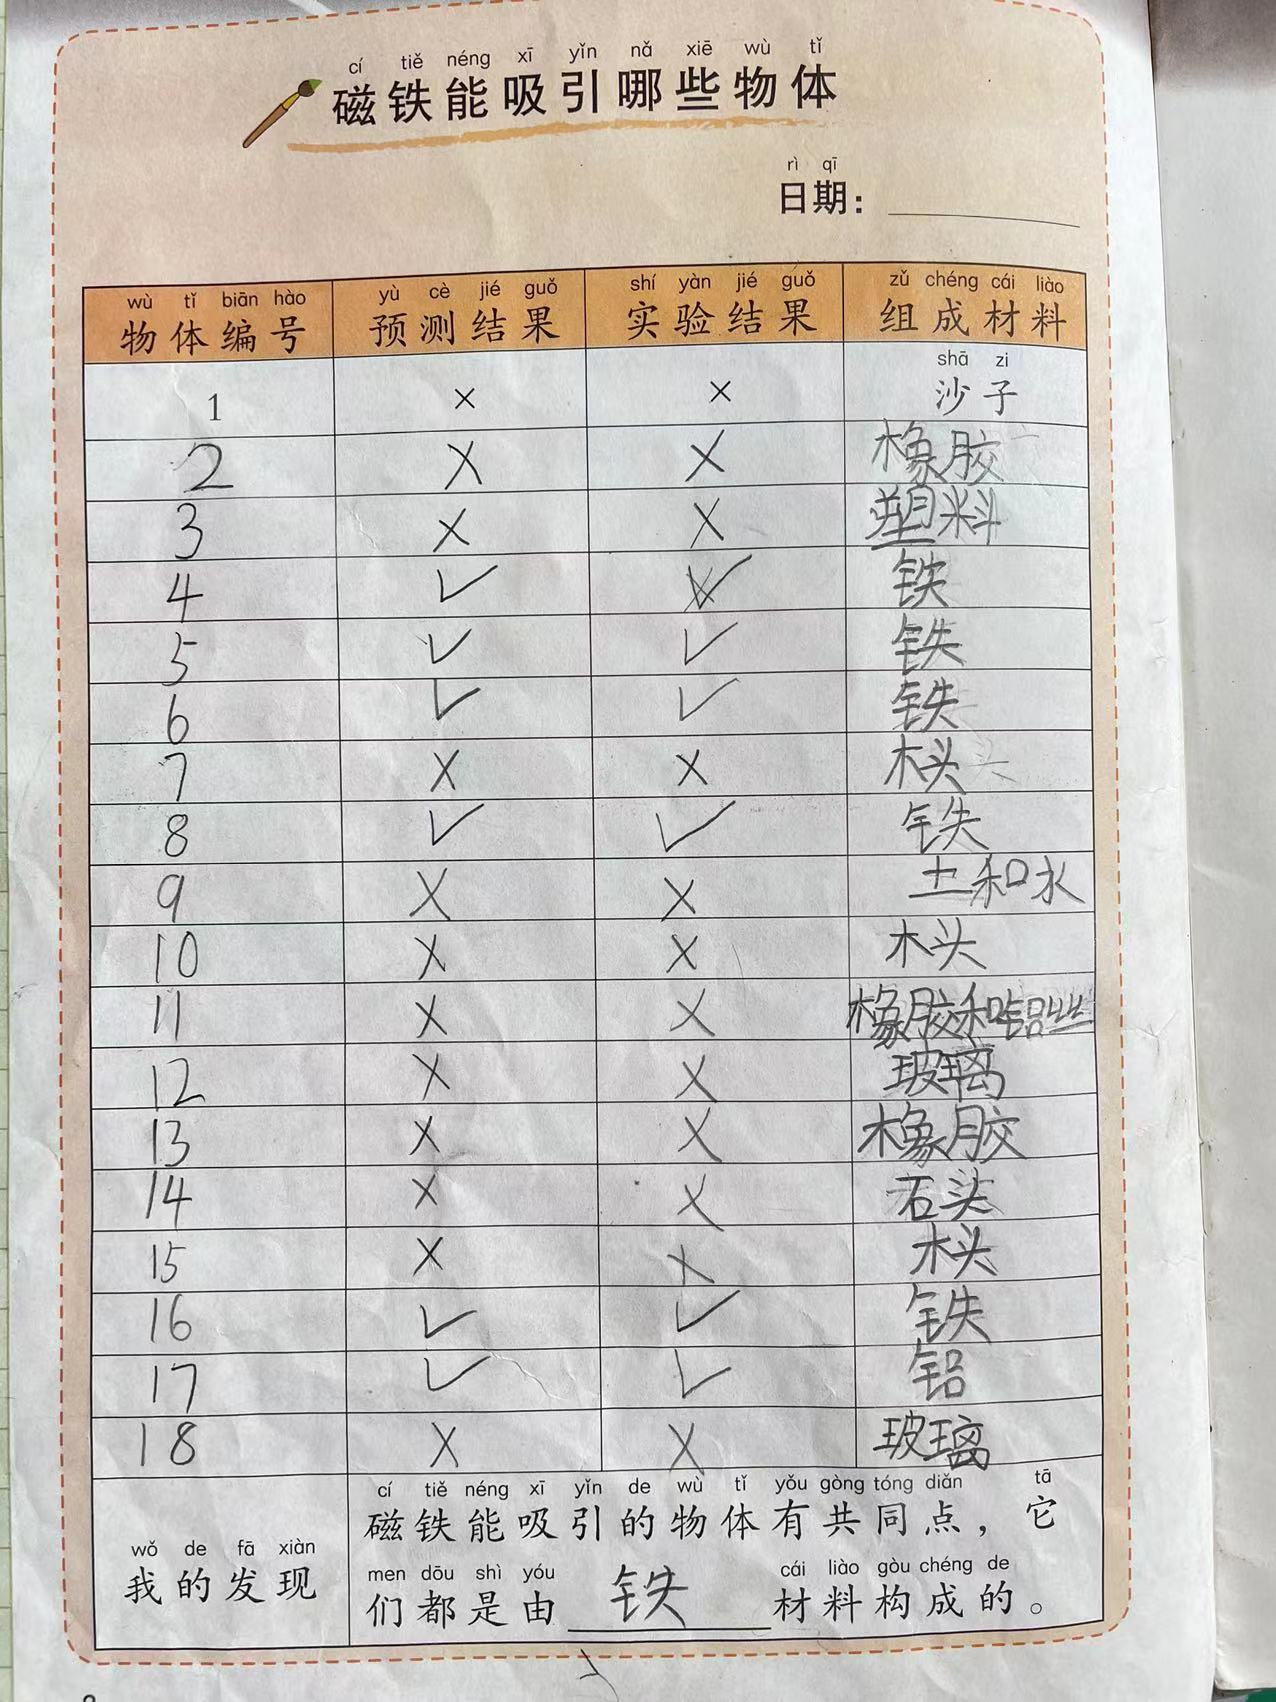 cí tiě néng xī yǐn nǎ xiē wù tǐ
磁铁能吸引哪些物体
rì qī
日期：
wù tǐ biān hào yù cè jié guǒ shí yàn jié guǒ zǔ chéng cái liào
物体编号 预测结果 实验结果 组成材料
shā zi
1 × × 沙子
2 × × 橡胶
3 × × 塑料
4 ✓ ✓ 铁
5 ✓ ✓ 铁
6 ✓ ✓ 铁
7 × × 木头
8 ✓ ✓ 铁
9 × × 土和水
10 × × 木头
11 × × 橡胶和铝丝
12 × × 玻璃
13 × × 橡胶
14 × × 石头
15 × × 木头
16 ✓ ✓ 铁
17 ✓ ✓ 铝
18 × × 玻璃
wǒ de fā xiàn
我的发现
cí tiě néng xī yǐn de wù tǐ yǒu gòng tóng diǎn tā
磁铁能吸引的物体有共同点，它
men dōu shì yóu cái liào gòu chéng de
们都是由 铁 材料构成的。